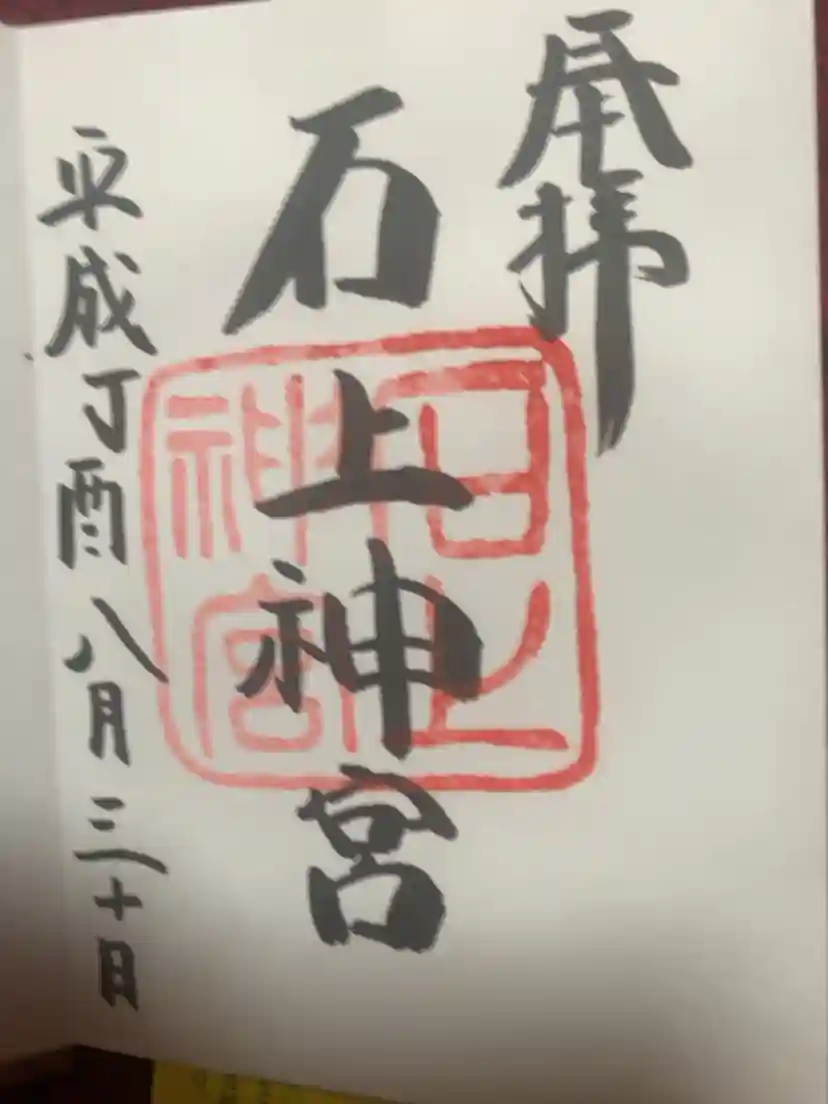 奉拝
石上神宮
平成丁酉八月三十日
石上神宮